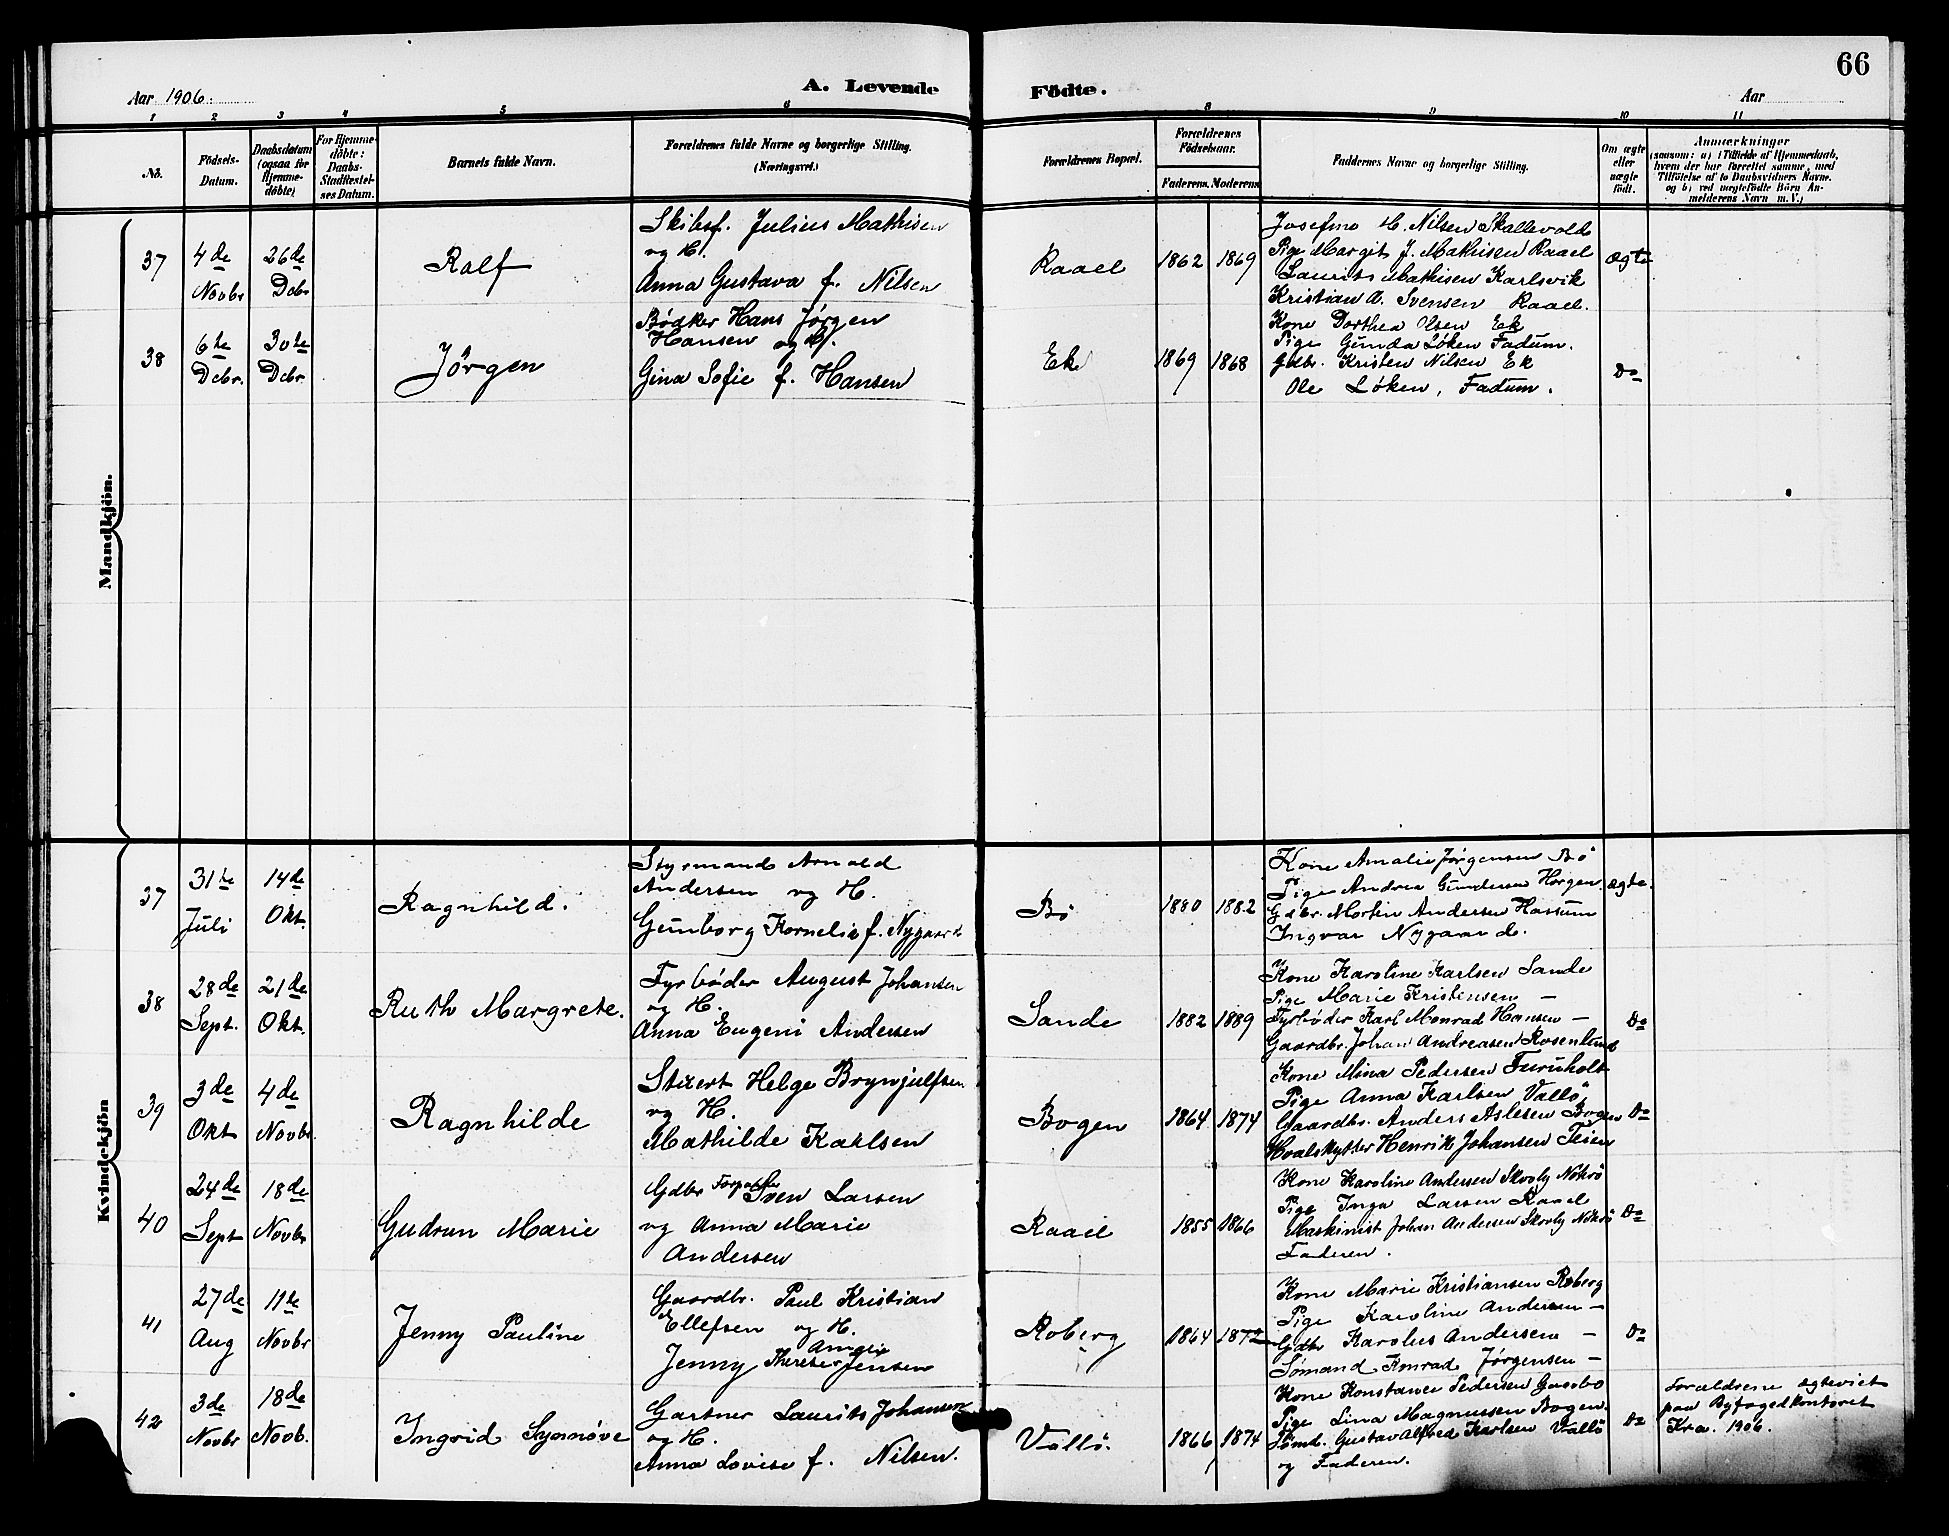 66
Aar 1906.
A. Levende Födte.
Aar
1 2 3 4 5 6 8 9 10 11
No.
Födsels-Datum.
Daabsdatum (ogsaa for Hjemme-döbte)
For Hjemme-döbte: Daabs-Stadfæstel-ses Datum.
Barnets fulde Navn.
Forældrenes fulde Navne og borgerlige Stilling. (Næringsvei.)
Forældrenes Bopæl.
Forældrenes Födselsaar.
Faderens. Moderens.
Faddernes Navne og borgerlige Stilling.
Om ægte eller uægte födt.
Anmærkninger
(saasom: a) i Tilfælde af Hjemmedaab,
hvem der har forrettet samme, med
Tilföielse af to Daabsvidners Navne,
og b) ved uægtefödte Börn An-
melderens Navn m. V.)
Mandkjön.
37
4de Novbr
26de Dcbr
Ralf
Skibsf. Julius Mathisen
og H.
Anna Gustava f. Nilsen
Raael
1862
1869
Josefine H. Nilsen Skallevold
Pige Margit J. Mathisen Raael
Laurits Mathisen Karlsvik
Kristian A. Svensen Raael.
ægte
38
6te Dcbr.
30te Dcbr.
Jörgen
Bödker Hans Jörgen
Hansen og H.
Gina Sofie f. Hansen
Ek
1869
1868
Kone Dorthea Olsen Ek
Pige Gunda Löken Fadum.
Gdbr. Kristen Nilsen Ek
Ole Löken, Fadum.
Do
Kvindekjön
37
31te Juli
14de Okt.
Ragnhild.
Styrmand Arnold
Andersen og H.
Gunborg Kornelia f. Nygaard
Bö
1880
1882
Kone Amalie Jörgensen Bö
Pige Andrea Gundersen Horgen
Gdbr. Martin Andersen Hassum
Ingvar Nygaard.
ægte.
38
28de Sept.
21de Okt.
Ruth Margrete.
Fyrböder August Johansen
og H.
Anna Eugeni Andersen
Sande
1882
1889
Kone Karoline Karlsen Sande
Pige Marie Kristensen —
Fyrböder Karl Monrad Hansen —
Gaardbr. Johan Andreasen Rosenlund
Do
39
3de Okt
4de Novbr.
Ragnhilde
Stuert Helge Brynjulfsen
og H.
Mathilde Karlsen
Bogen
1864
1874
Kone Mina Pedersen Furuholt
Pige Anna Karlsen Vallö
Gaardbr. Anders Aslesen Bogen
Hvalskytter Henrik Johansen Teien
Do
40
24de Sept
18de Novbr
Gudrun Marie
Gdbr Forpagter Sven Larsen
og Anna Marie
Andersen
Raael
1855
1866
Kone Karoline Andersen Skovly Nötrö
Pige Inga Larsen Raael
Maskinist Johan Andersen Skovly Nötrö
Faderen.
Do
41
27de Aug
11te Novbr
Jenny Pauline
Gaardbr. Paul Kristian
Ellefsen og H.
Jenny Therese Amalie Jensen
Roberg
1864
1872
Kone Marie Kristiansen Roberg
Pige Karoline Andersen —
Gdbr Karolus Andersen —
Sömand Konrad Jörgensen —
Do
42
3de Novbr
18de Novb.
Ingrid Synnöve
Gartner Laurits Johansen
og H.
Anna Lovise f. Nilsen.
Vallö.
1866
1874
Kone Konstance Pedersen Gaasbo
Pige Lina Magnussen Bogen.
Sömd. Gustav Alfred Karlsen Vallö
og Faderen.
Do
Forældrene ægteviet
paa Byfogedkontoret
Kra. 1906.